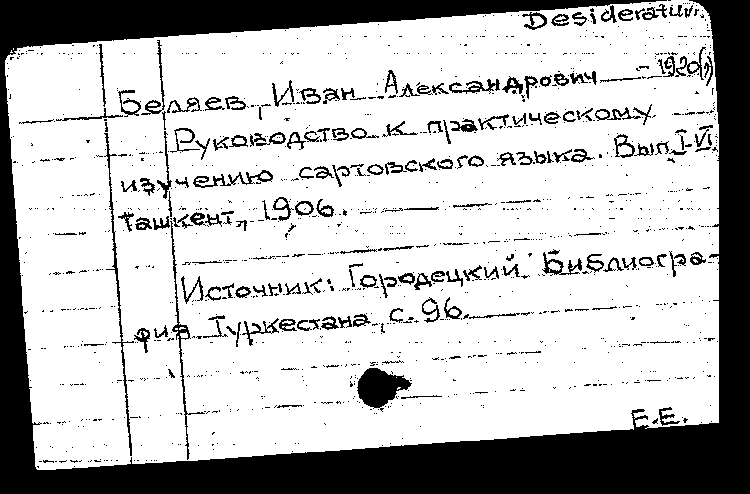 Desideratum.
Беляев, Иван Александрович – 1920(?)
Руководство к практическому
изучению сартовского языка. Вып. I-VI.
Ташкент, 1906.
Источник: Городецкий. Библиогра-
фия Туркестана, с. 96.
Е.Е.